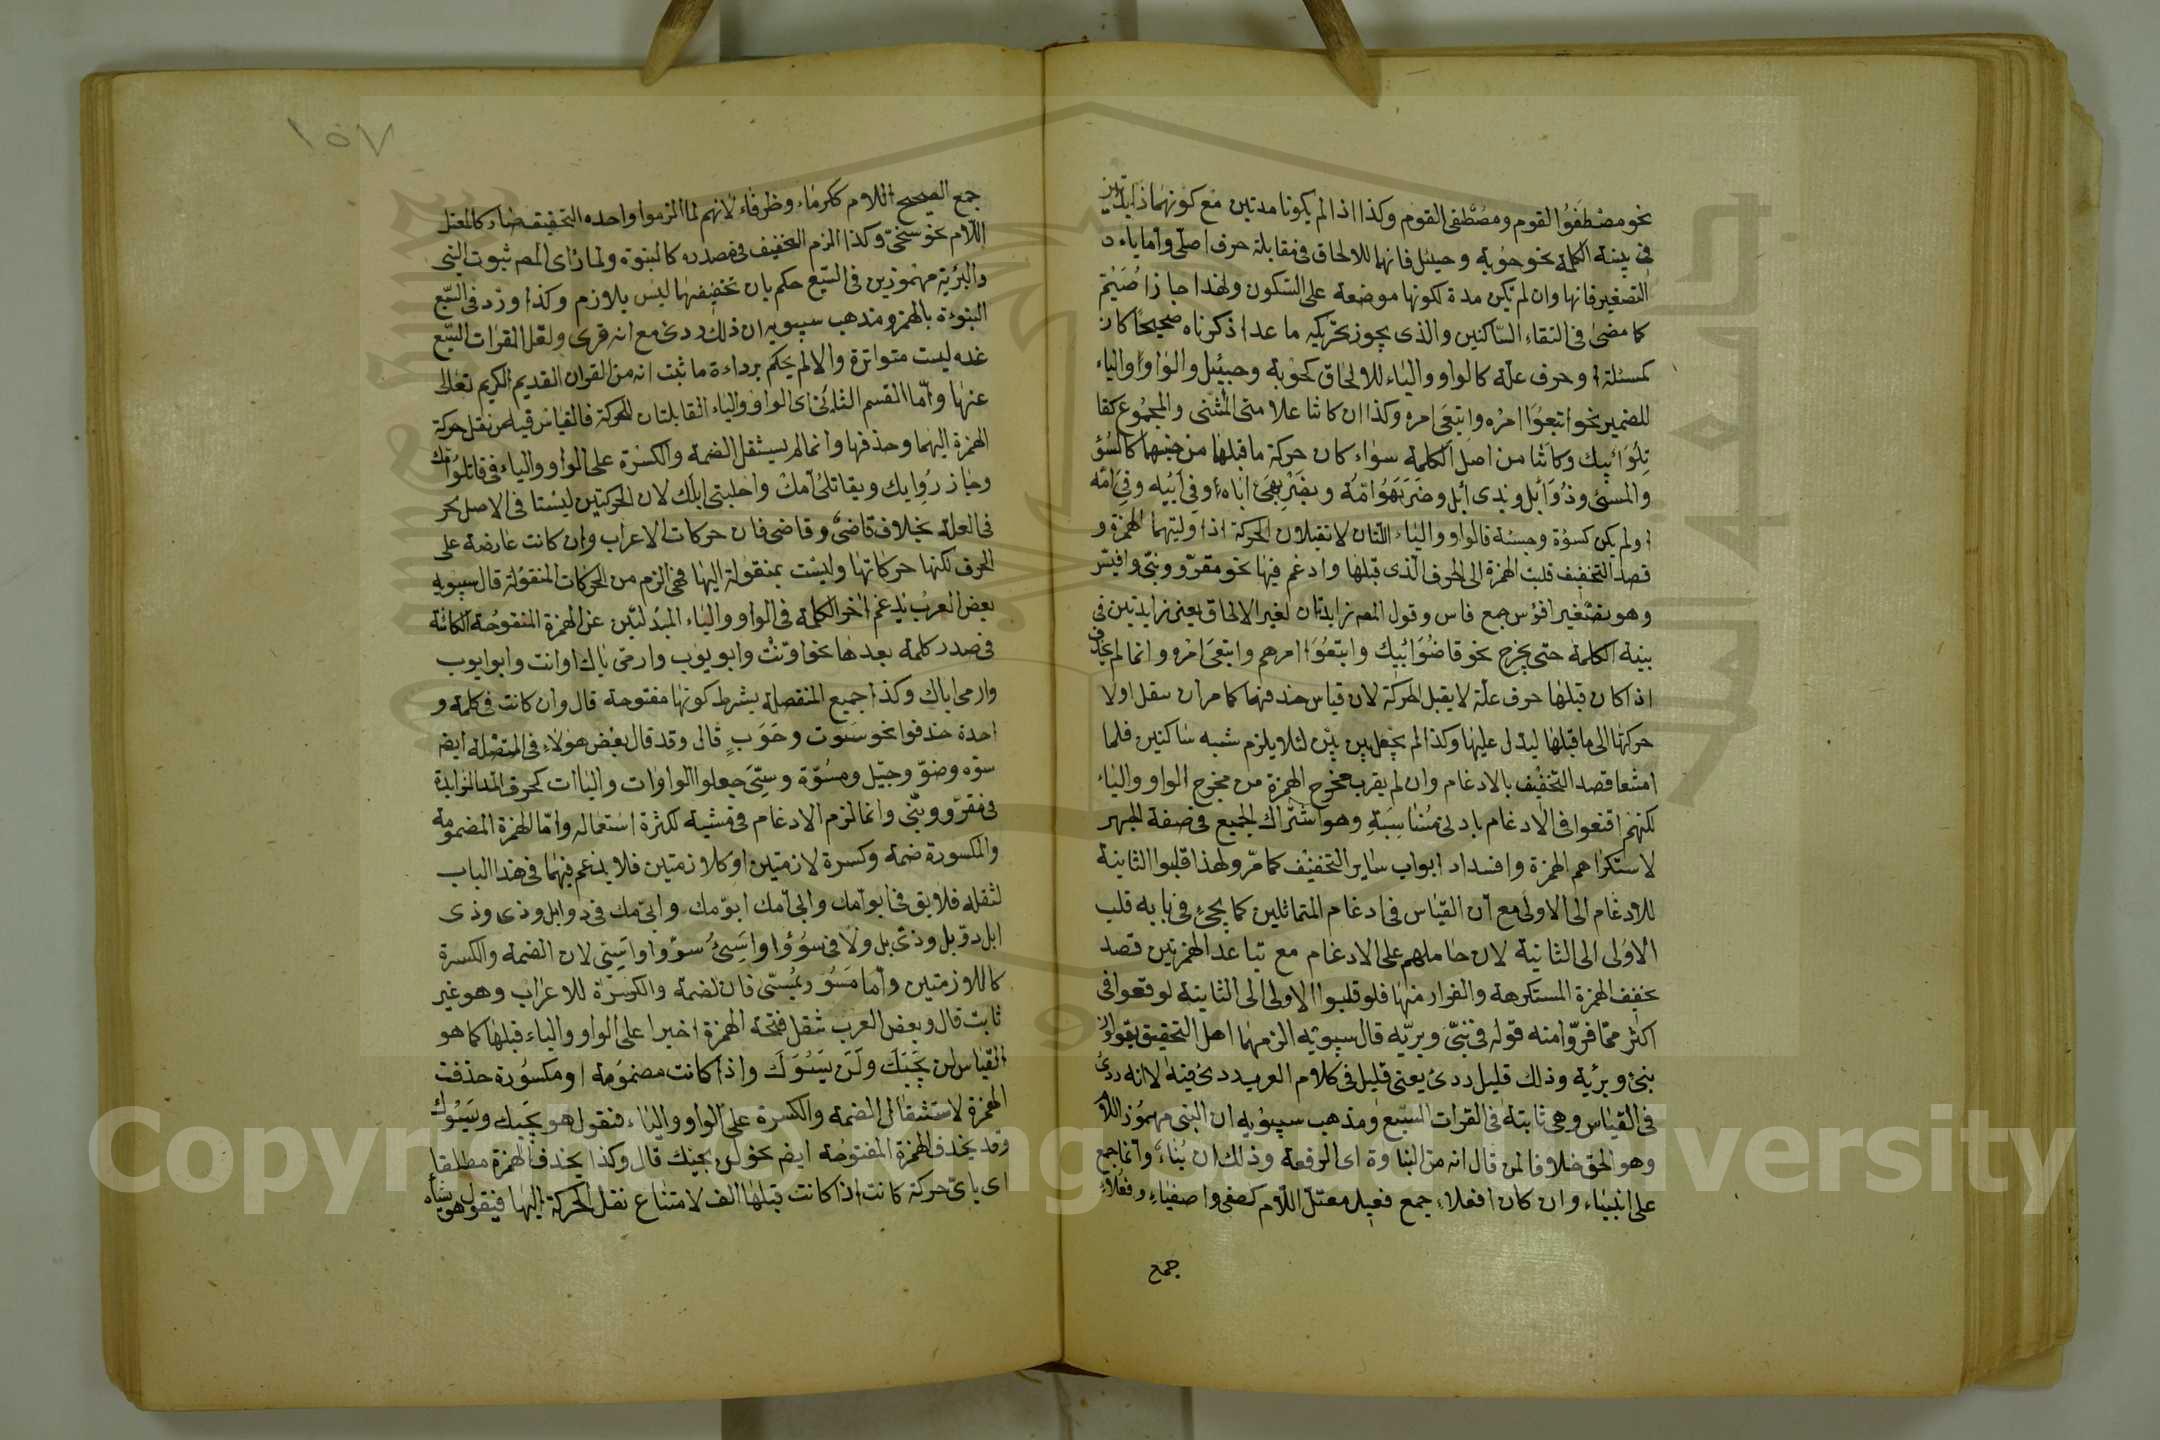 نحو مصْطفَوُا القوم ومصْطفَى القوم وكذا اذا لم يكونا مدتين مع كونهما زايدتين
فى بنية الكلمة نحو حوْبة وجيئل فانهما للالحاق فى مقابلة حرف اصلى واما ياء
التصغير فانها وان لم تكن مدة لكونها موضعة على السكون ولهذا جاز اُصَيْمّ
كما مضى فى التقاء السّاكنين والذى يجوز تحريكه ما عدا ذكرناه صحيحًا كان
كمسئلة او حرف علّة كالواو والياء للالحاق كحوْبة وجيئيل والواو او الياء
للضمير نحو اتبعوا امرُه واتبعَى امره وكذا ان كانتا علامتى المثنى والمجموع كقا
تِلوَ ابيك وكانتا من اصل الكلمة سواء كان حركة ما قبلها من جنسها كالسُؤ
والمسئ وذُوَ ابل وبذى ابل وضَرَبَهوُ امّه وبضَرْبِهىَ اباه وفى ابيه وفِىَ امّه
او لم يكن كسوْة وجيئة فالواو والياء اللتان لا تقبلان الحركة اذا وليتهما الهمزة و
قصد التخفيف قلبت الهمزة الى الحرف الّذى قبلها وادغم فيها نحو مقروّ ونبىّ وافيّس
وهو تصْغير افؤس جمع فاس وقول المص زايدتان لغير الالحاق يعنى زايدتين فى
بنية الكلمة حتى يخرج نحو قاضوَ ابيك واتبعُوَا امرهم واتبعَى امْره وانما لم تحذف
اذا كان قبلها حرف علّة لا يقبل الحركة لان قياس حذفها كما مر ان تنقل اولا
حركتها الى ما قبلها ليدل عليها وكذا لم يجعل بين بيْن لئلا يلزم شبه ساكنين فلما
امتنعا قصد التخفيف بالادغام وان لم يقرب مخرج الهمزة من مخرج الواو والياء
لكنهم اقنعوا فى الادغام بادنى مُنَاسبَةٍ وهو اشتراك الجميع فى صفة الجهر
لاستكراهم الهمزة وانسداد ابواب ساير التخفيف كما مرّ ولهذا قلبوا الثانية
للادغام الى الاولى مع ان القياس فى ادغام المتماثلين كما يجئ فى بابه قلب
الاولى الى الثانية لان حاملهم على الادغام مع تباعد الهمزتين قصد
تخفيف الهمزة المستكرهة والفرار منها فلو قلبوا الاولى الى الثانية لوقعوا فى
اكثر ممّا فرّوا منه قوله فى نبىّ وبريّه قال سيبويه الزمهما اهل التحقيق يقولون
نبئ وبرئة وذلك قليل ردئ يعنى قليل فى كلام العرب ردئ فيه لا انه ردئ
فى القياس وهى ثابتة فى القرات السّبع ومذهب سيبويه ان النبى مهموز اللام
وهو الحق خلافا لمن قال انه من النباوة اى الرفعة وذلك ان نُباءَ وانما جمع
على انبياء وان كان افعلاء جمع فعيل معتلّ اللّام كصفى واصفياء وفعلاء
جمع
١٥٧
جمع الصحيح اللام ككرماء وظرفاء لانهم لما الزموا واحده التخفيف صار كالمعتل
اللّام نحو سخىّ وكذا الزم التخفيف فى مصدره كالنبوّة ولما رأى المص ثبوت النبى
والبرئة مهموزين فى السّبع حكم بان تخفيفهما ليس بلازم وكذا ورد فى السّبع
النبوءة بالهمز ومذهب سيبويه ان ذلك ردئ مع انه قرى ولعل القرات السّبع
عنده ليست متواترة والا لم يحكم برداءة ما ثبت انه من القران القديم الكريم تعالى
عنها وامّا القسم الثانى اى الواو والياء القابلتان للحركة فالقياس فيه من نقل حركة
الهمزة اليهما وحذفها وانما لم يستثقل الضمة والكسرة على الواو والياء فى قاتلوُ امّك
وجاز رُوابِك وبقاتلىُ امّك واحلبنى ابلك لان الحركتين ليستا فى الاصل لحر
فى العلة بخلاف قاضىٌ وقاضى فان حركات الاعراب وان كانت عارضة على
الحرف لكنها حركاتها وليست بمنقولة اليها فهى الزم من الحركات المنقولة قال سيبويه
بعض العرب يدغم اخر الكلمة فى الواو والياء المبدلتين عن الهمزة المفتوحة الكائنة
فى صدر كلمة بعدها نحو اوّنْتَ وابو يوّب وارمىّ باك او انت وابو ايوب
وارمى اباك وكذا جميع المنفصلة بشرط كونها مفتوحة قال وان كانت فى كلمة و
احدة حذفوا نحو سَوَت وحَوَبٍ قال وقد قال بعض هؤلاء فى المتصْلة ايض
سوّه وضوّ وجيّل ومسُوّة وسِىّ جعلوا الواوات والياات كحرف المد الزايدة
فى مقروّ ونبّى وانما لزم الادغام فى مشية لكثرة استعماله وامّا الهمزة المضمومة
والمكسورة ضمة وكسرة لازمتين او كلازمتين فلا يدغم فيهما فى هذا الباب
لثقله فلا يق فى ابو امّك وابى امّك ابوّمك وابىّ مك فى ذو ابل وذى
ابل ذوّ بل وذىّ بل ولا فى سوُؤا واَسَيئُ سوّوا واَسيّى لان الضمة والكسرة
كاللازمتين وامّا مَسَوُّ وبمُسىّ فان لضمة والكسرة للاعراب وهو غير
ثابت قال وبعض العرب تنقل فتحة الهمزة اخيرا على الواو والياء قبلها كما هو
القياس لن يَجيَكَ ولَن يَسوَكَ واذا كانت مضمومة او مكسورة حذفت
الهمزة لاستثقال الضمة والكسرة على الواو والياء فنقول هو يجيك ويَسُوك
وقد يحذف الهمزة المفتوحة ايض نحو لن يجيك قال وكذا يحذف الهمزة مطلقا
اى باىّ حركة كانت اذا كانت قبلها الف لامتناع نقل الحركة اليها فيقول هو يشاه
Copyright © King Saud University